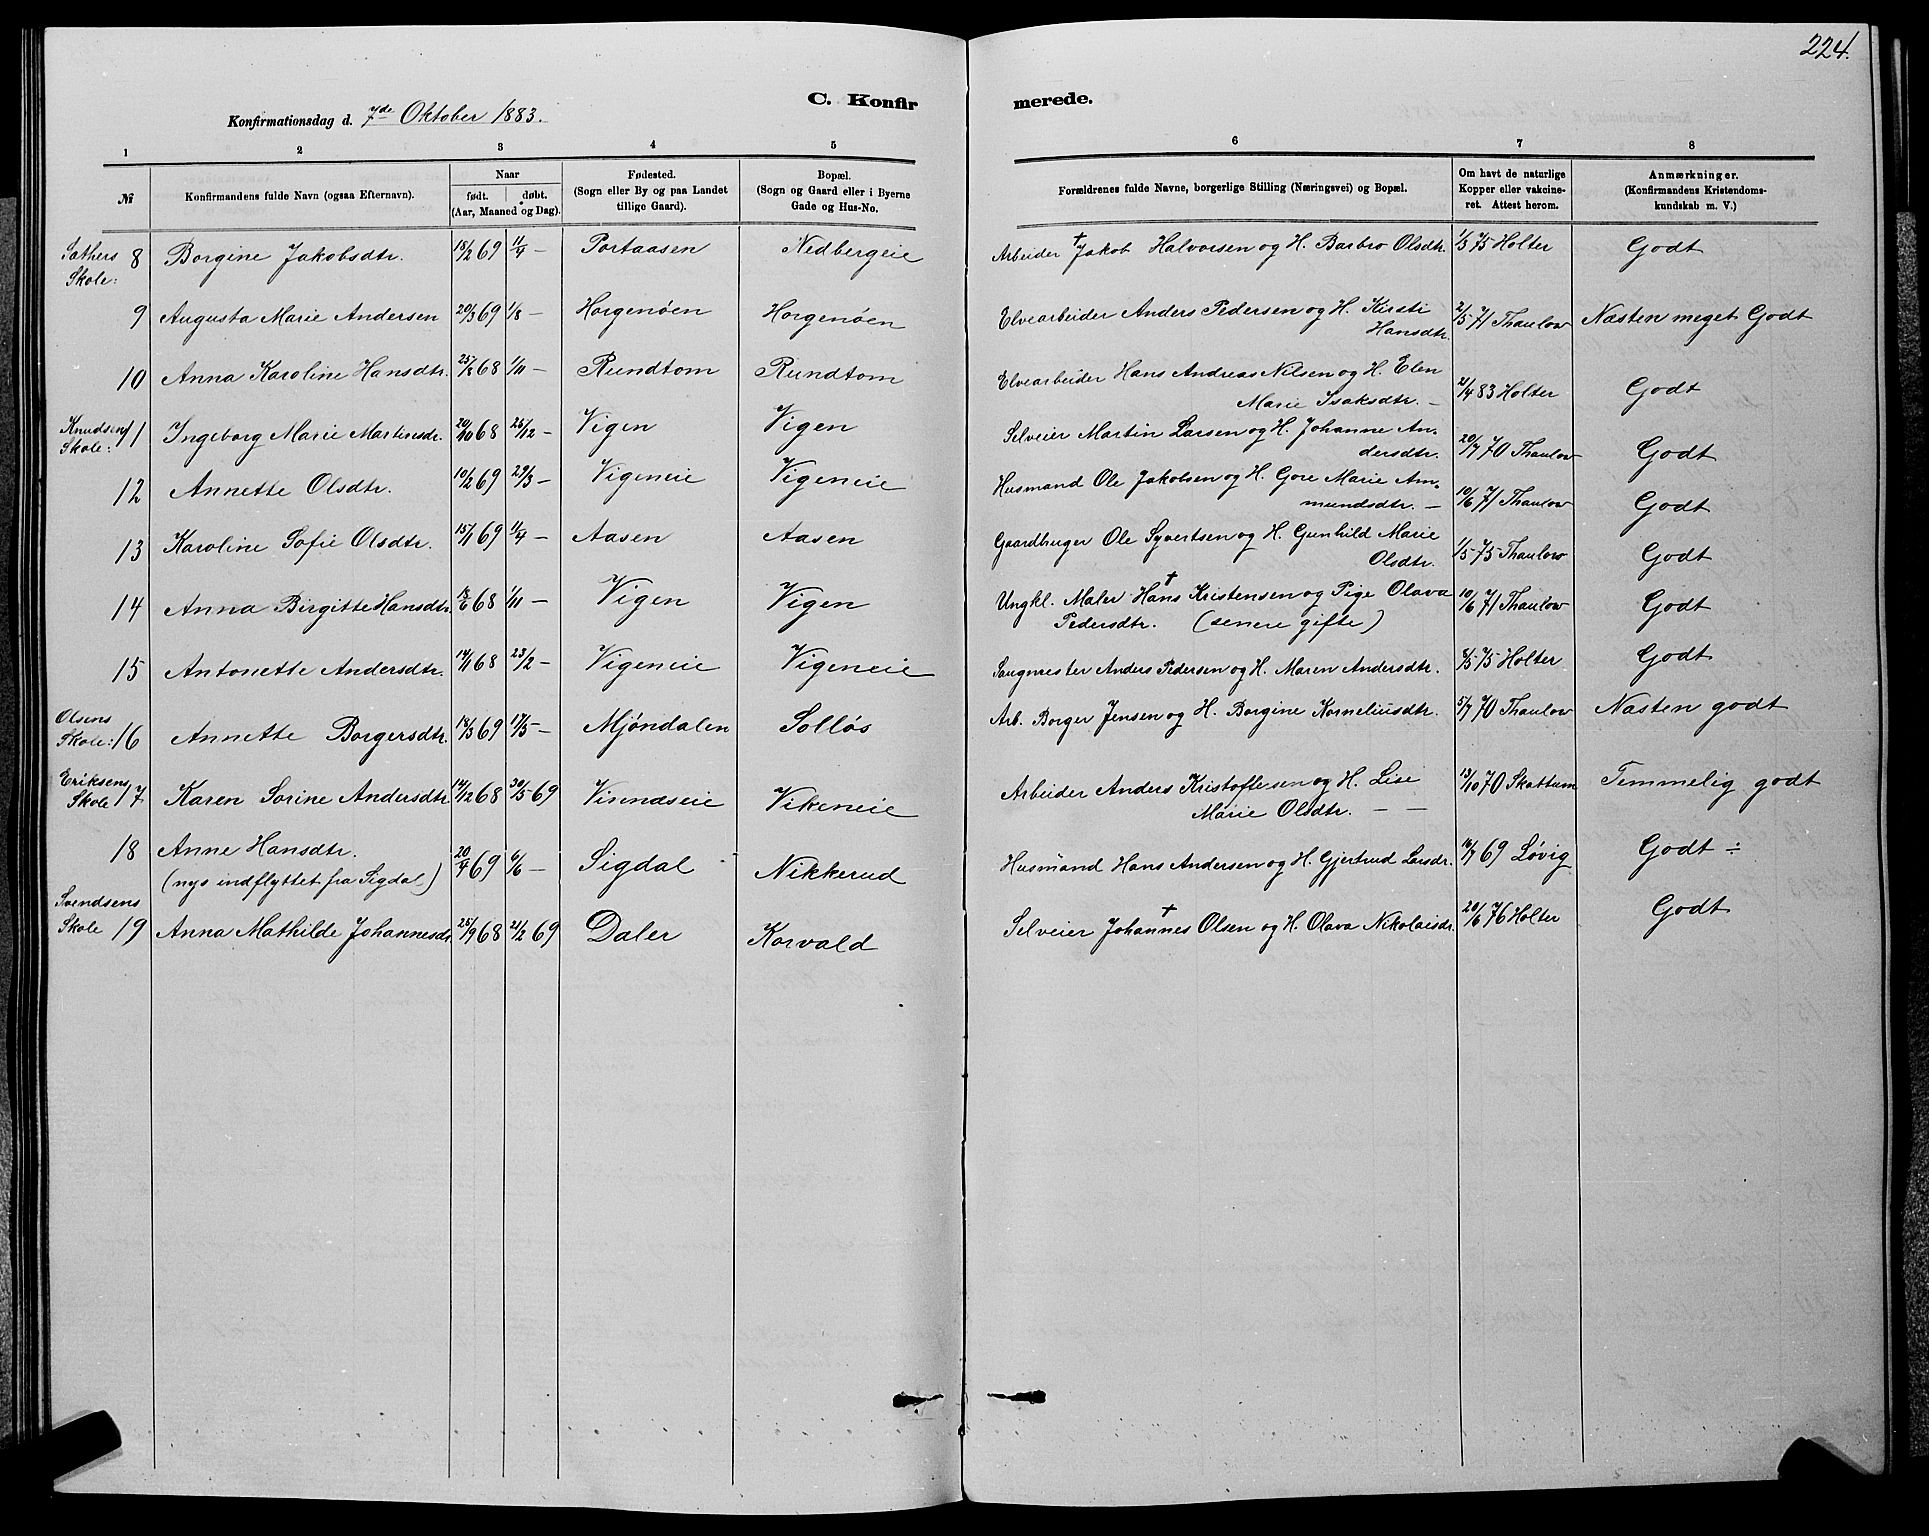 224.
C. Konfirmerede.
Konfirmationsdag d. 7de Oktober 1883.
1 2 3 4 5 6 7 8
№ | Konfirmandens fulde Navn (ogsaa Efternavn). | Naar født. døbt. (Aar, Maaned og Dag). | Fødested. (Sogn eller By og paa Landet tillige Gaard). | Bopæl. (Sogn og Gaard eller i Byerne Gade og Hus-No. | Forældrenes fulde Navne, borgerlige Stilling (Næringsvei) og Bopæl. | Om havt de naturlige Kopper eller vakcineret. Attest herom. | Anmærkninger. (Konfirmandens Kristendomskundskab m. V.)
Sathers Skole: 8 | Borgine Jakobsdtr. | 18/2 69 | 11/4 — | Portaasen | Nedbergeie | Arbeider † Jakob Halvorsen og H. Barbro Olsdtr. | 1/3 75 Holter | Godt
9 | Augusta Marie Andersen | 20/3 69 | 1/8 — | Horgenöen | Horgenöen | Elvearbeider Anders Pedersen og H. Kirsti Hansdtr. | 2/5 71 Thaulow | Næsten meget Godt
10 | Anna Karoline Hansdtr. | 25/8 68 | 1/11 — | Rundtom | Rundtom | Elvearbeider Hans Andreas Nilsen og H. Elen Marie Isaksdtr. — | 21/4 83 Holter | Godt
Knudsens Skole: 11 | Ingeborg Marie Martinsdr. | 20/10 68 | 26/12 — | Vigen | Vigen | Selveier Martin Larsen og H. Johanne Andersdtr. | 20/7 70 Thaulow | Godt
12 | Annette Olsdtr. | 10/2 69 | 29/3 — | Vigeneie | Vigeneie | Husmand Ole Jakobsen og H. Gore Marie Ammundsdtr. — | 10/6 71 Thaulow | Godt
13 | Karoline Sofie Olsdtr. | 15/1 69 | 11/4 — | Aasen | Aasen | Gaardbruger Ole Syvertsen og H. Gunhild Marie Olsdtr. | 1/5 75 Thaulow | Godt
14 | Anna Birgitte Hansdtr. | 68 | 1/11 — | Vigen | Vigen | Ungkl. Maler † Hans Kristensen og Pige Olava Pedersdtr. (senere gifte) | 10/6 71 Thaulow | Godt
15 | Antonette Andersdtr. | 14/11 68 | 23/2 — | Vigeneie | Vigeneie | Saugmester Anders Pedersen og H. Maren Andersdtr. | 75 Holter | Godt
Olsens Skole: 16 | Annette Borgersdtr. | 18/3 69 | 17/5 — | Mjöndalen | Solløs | Arb. Borger Jensen og H. Borgine Korneliusdtr. | 5/7 70 Thaulow | Næsten godt
Eriksens Skole 17 | Karen Sorine Andersdtr | 14/12 68 | 30/5 69 | Vinnæseie | Vikeneie | Arbeider Anders Kristoffersen og H. Lise Marie Olsdtr. — — | 13/10 70 Skattum | Temmelig godt
18 | Anne Hansdtr. (nys indflyttet fra Sigdal) | 20/4 69 | 6/6 — | Sigdal | Nikkerud | Husmand Hans Andersen og H. Gjertrud Larsdr. | 16/7 69 Løvig | Godt ÷
Svendsens Skole 19 | Anna Mathilde Johannesdr. | 25/9 68 | 21/2 69 | Daler | Korvald | Selveier † Johannes Olsen og H. Olava Nikolaisdr. | 20/6 76 Holter | Godt